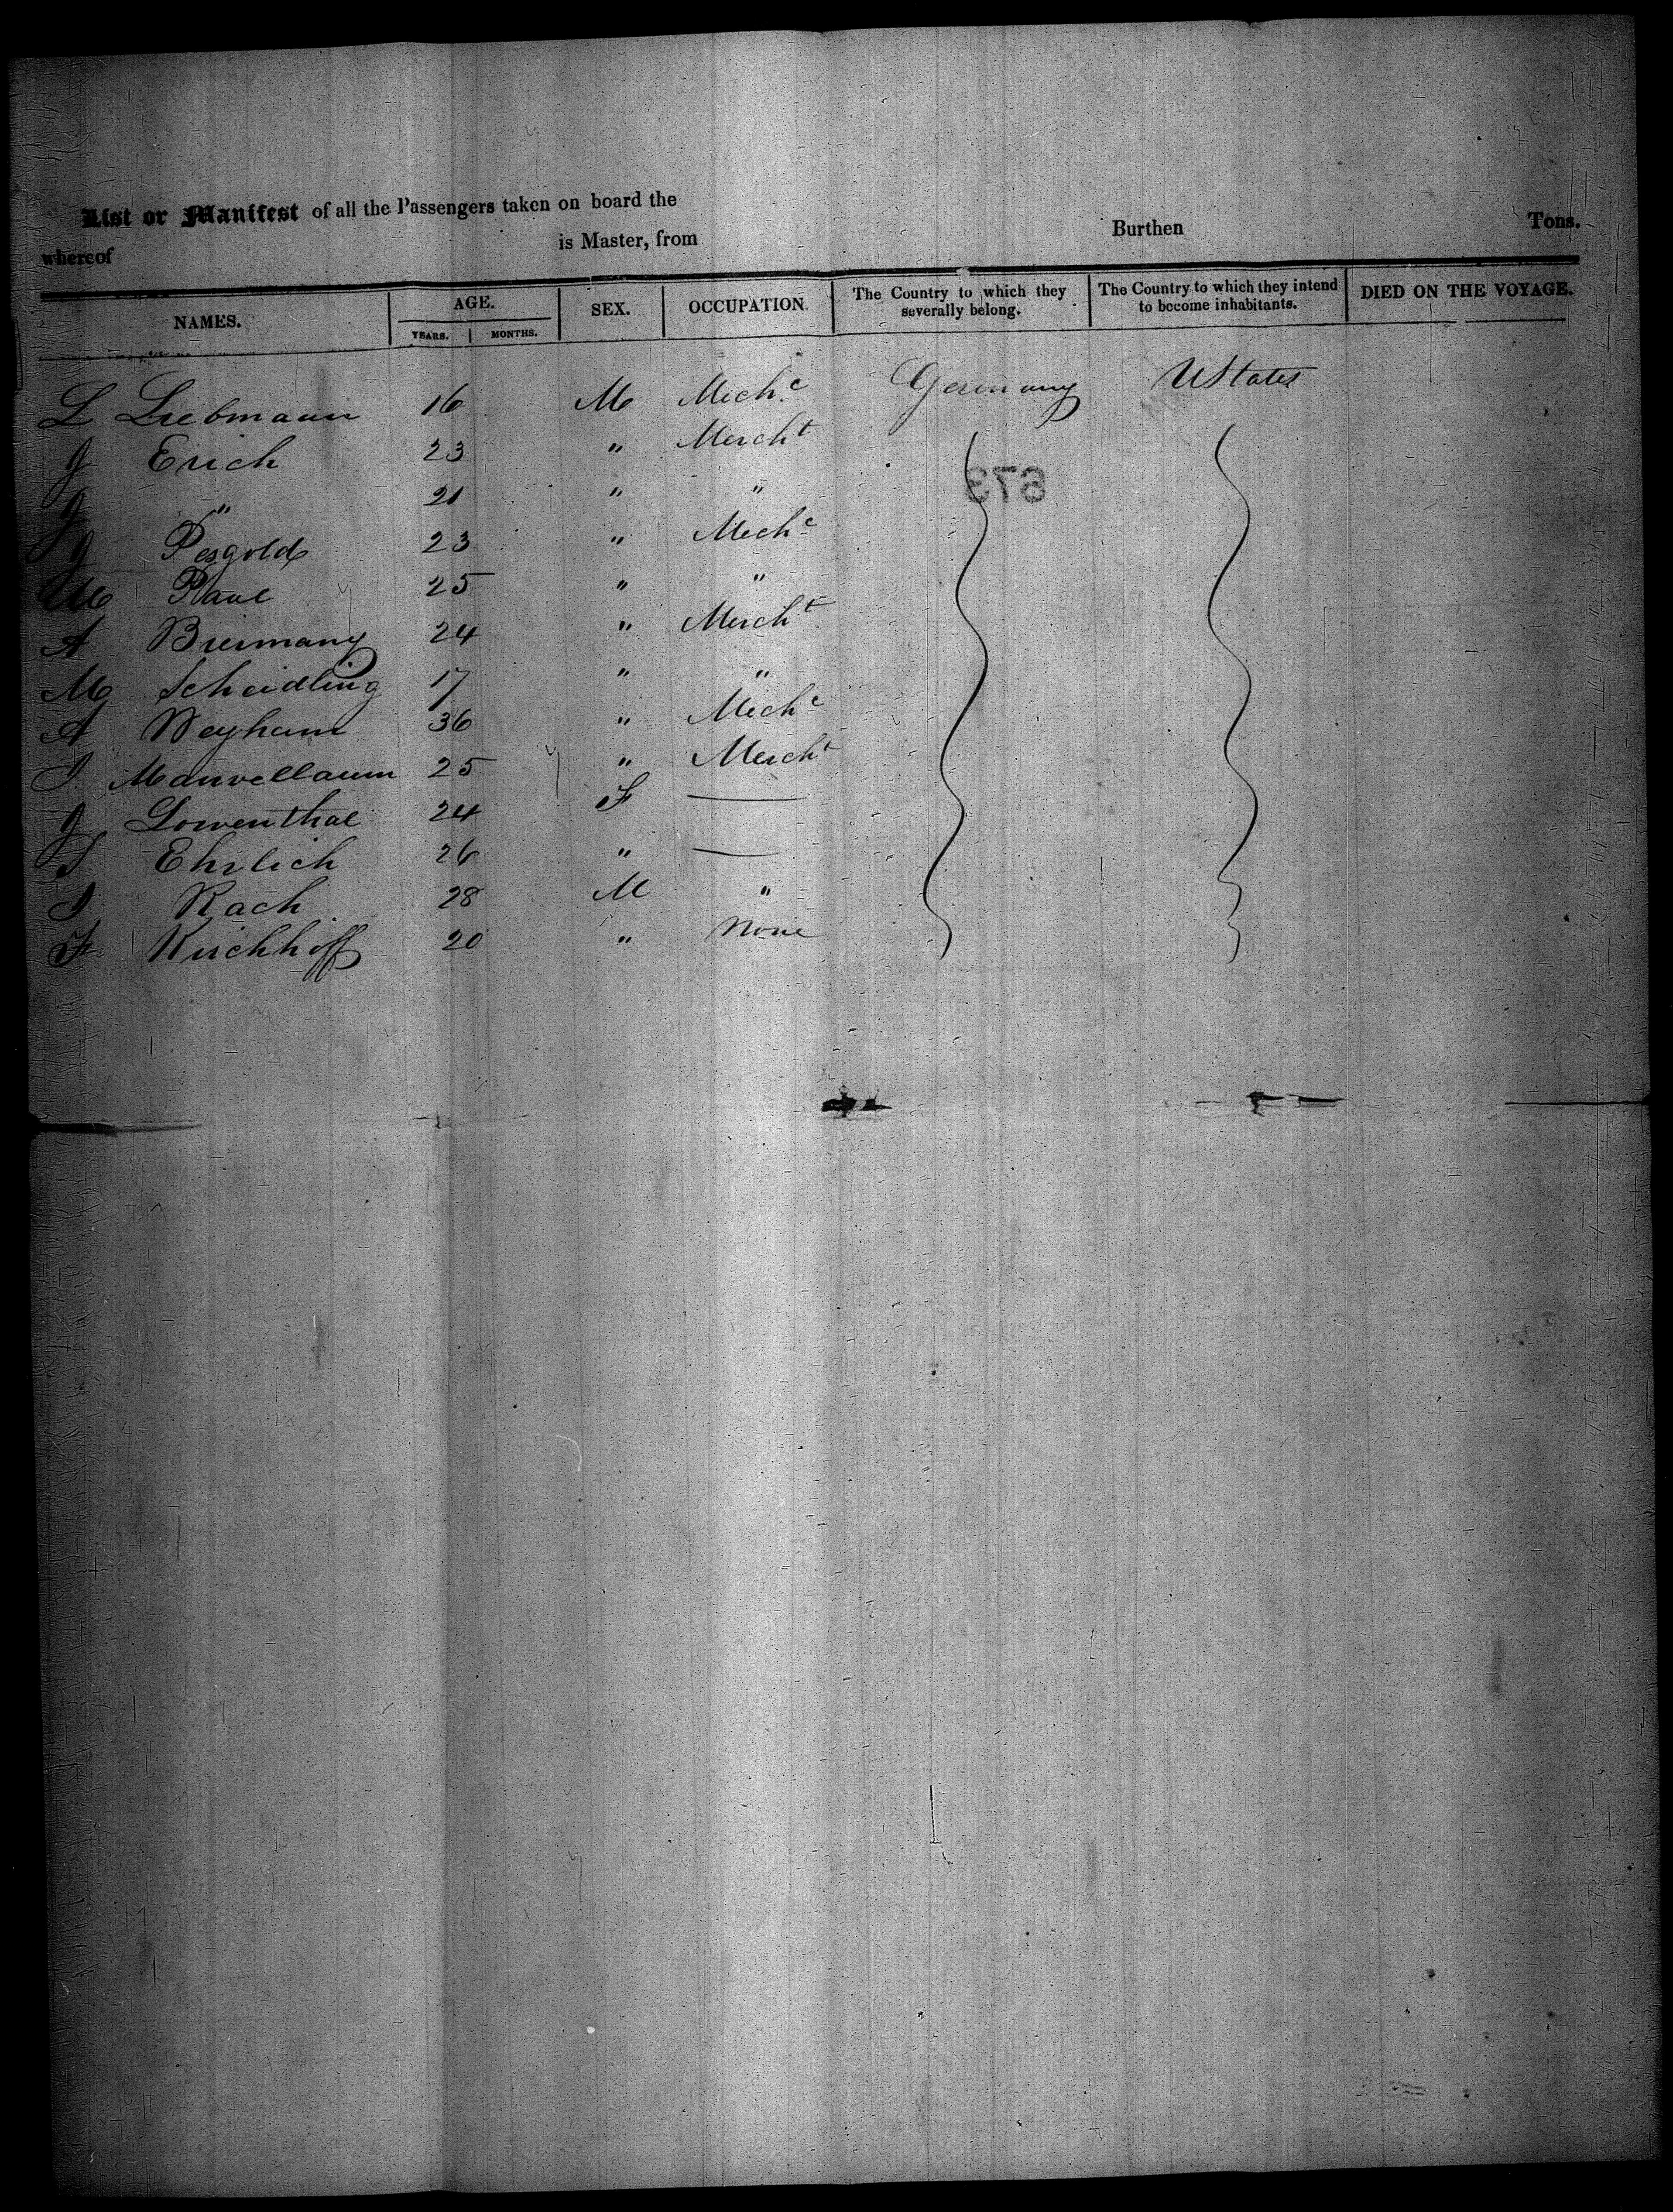 List or Manifest of all the Passengers taken on board the
whereof is Master, from Burthen Tons.
NAMES. AGE. SEX. OCCUPATION. The Country to which they severally belong. The Country to which they intend to become inhabitants. DIED ON THE VOYAGE.
YEARS. MONTHS.
L Liebmann 16 M Mechc Germany UStates
J Erich 23 " Mercht
J " 21 " "
J Pesgold 23 " Mechc
M 25 " "
A 24 " Mercht
M Scheidling 17 " "
A Weyham 36 " Mechc
25 " Mercht
J Lowenthal 24 F —
S Ehrlich 26 " —
I Rach 28 M "
F Kirchhoff 20 " None
673